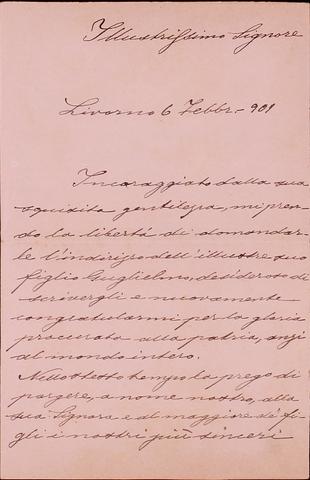 Illustrissimo Signore
Livorno 6 Febbr. - 901
Incoraggiato dalla sua
squisita gentilezza, mi pren-
do la libertá di domandar-
le l'indirizzo dell'illustre suo
figlio Guglielmo, desideroso di
scrivergli e nuovamente
congratularmi per la gloria
procurata alla patria, anzi
al mondo intero.
Nello stesso tempo la prego di
porgere, a nome nostro, alla
sua Signora e al maggiore de' fi-
gli i nostri più sinceri